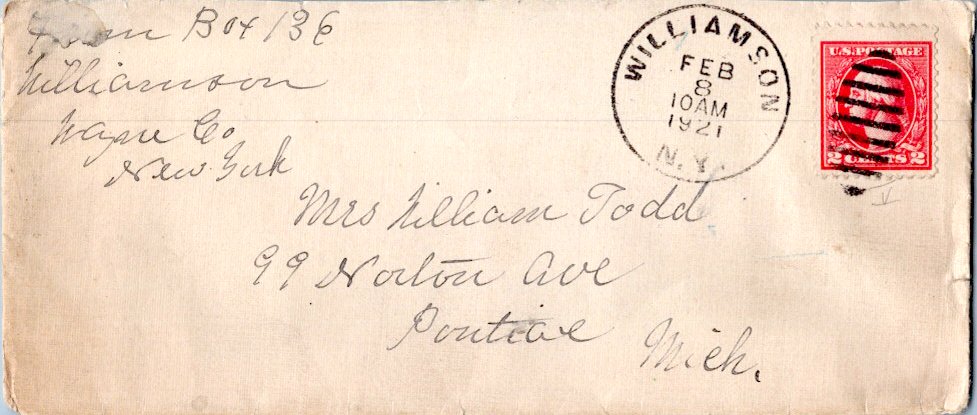 From Box 136
Williamson
Wayne Co
New York
WILLIAMSON
FEB
8
10AM
1921
N.Y.
U.S. POSTAGE
2 CENTS 2
Mrs William Todd
99 Norton Ave
Pontiac Mich.
V